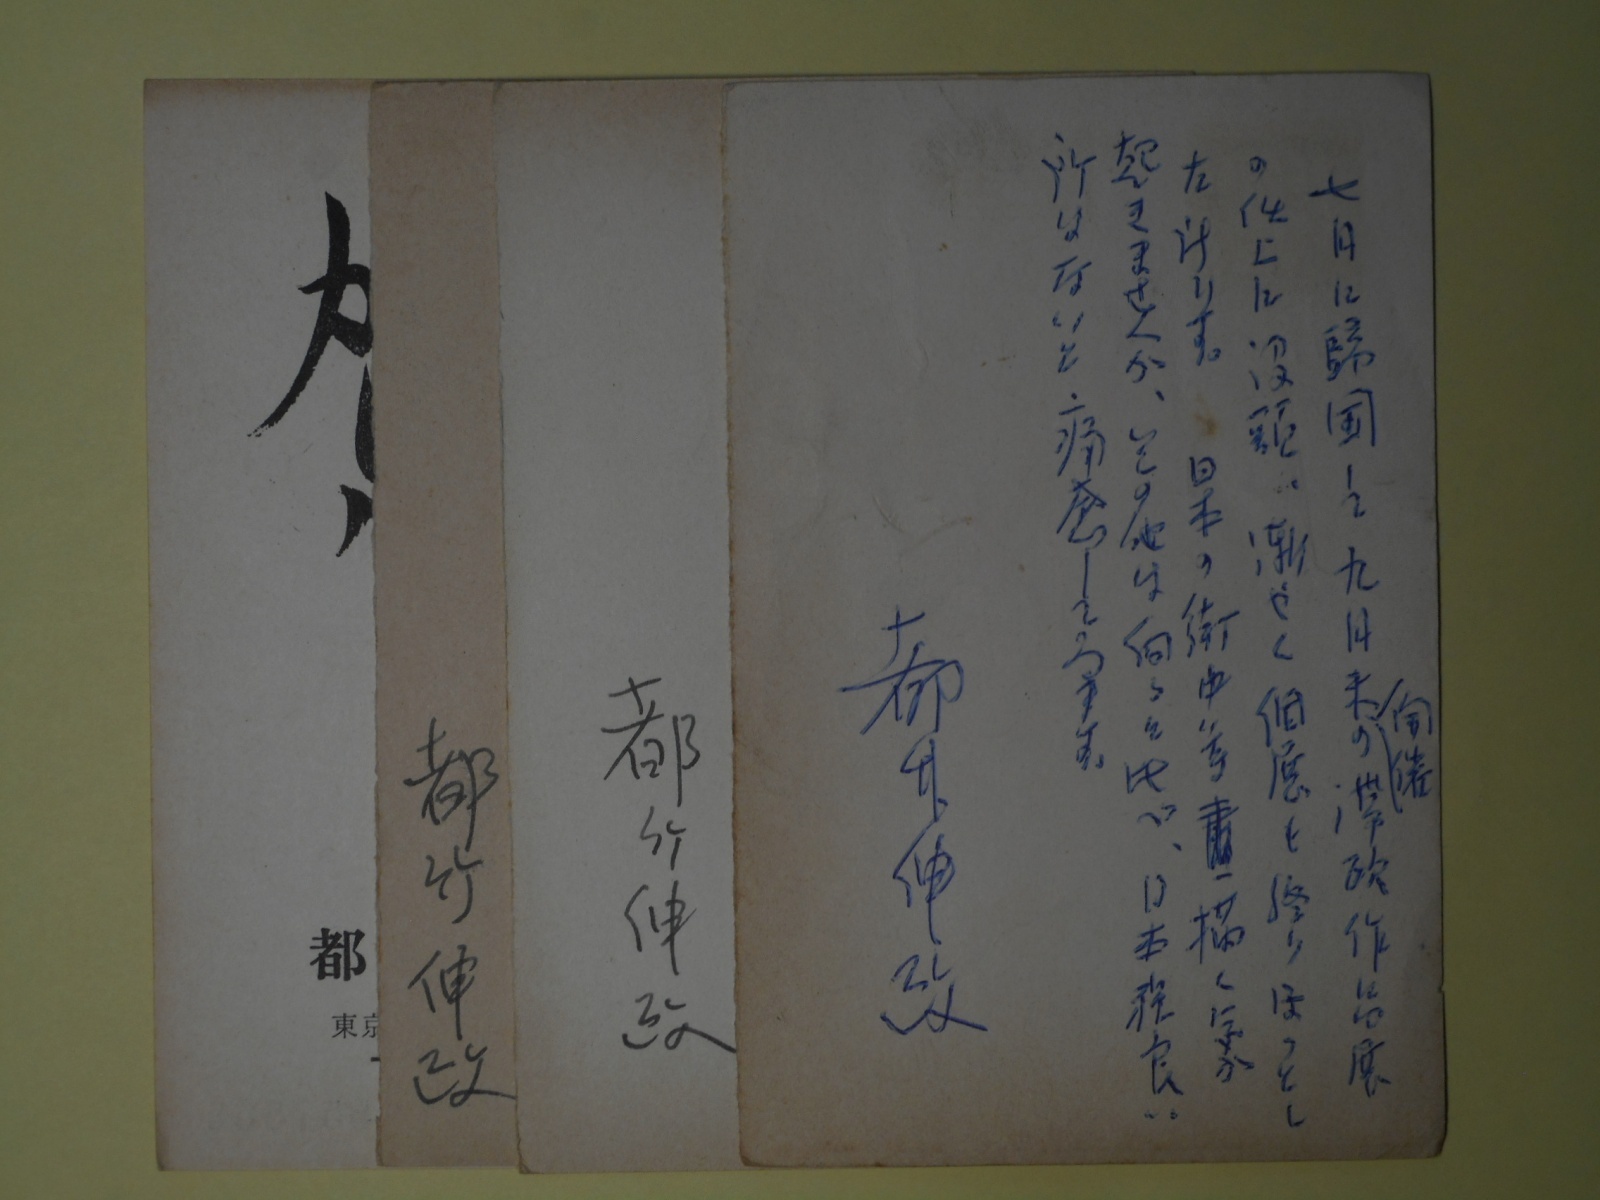 七月に歸国して九月末の滞欧作品展
開催
の仕上に没頭い漸やく個展も終りほっとし
た所です。日本の街中等畫描く気が
起きませんが、その他は何ると比べ、日本程良い
所はないと痛感して居ます。
都竹伸政
都竹伸政
都竹伸政
賀
都
東京